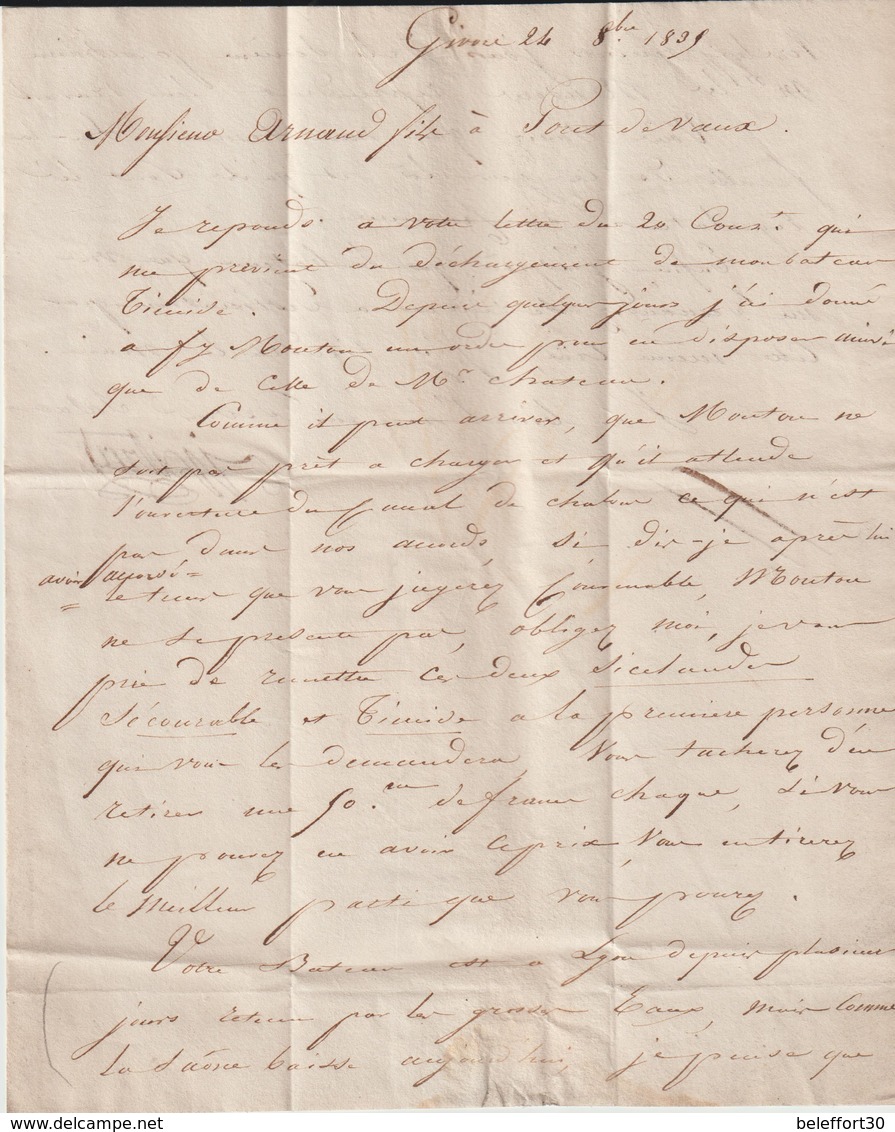 Givors 24 8bre 1839
Monsieur Arnaud fils à Pont de Vaux.
Je reponds a votre lettre du 20 Cour.t qui
me previent du déchargement de mon bateau
Timide. Depuis quelques jours j'ai donné
a Mouton un ordre pour en disposer ainsi
que de celle de Mr. chateau.
Comme il peut arriver, que Mouton ne
soit pas prêt a charger et qu'il attende
l'ouverture du Canal de chalon ce qui n'est
pas dans nos accords, si dis-je après lui
avoir
le tems que vous jugerez Convenable, Mouton
ne se presente pas, obligez moi, je vous
prie de remettre ces deux Sicelandes
Sécourable et Timide a la premiere personne
qui vous les demandera, Vous tacherez d'en
retirer une 50.ne de francs chaque, Si vous
ne pouvez en avoir ce prix vous en tirerez
le meilleur parti que vous pourez.
Votre Bateau est a Lyon depuis plusieurs
jours retenu par les grosses Eaux, mais comme
la Saône baisse aujourd'hui, je pense que
beleffort30
www.delcampe.net